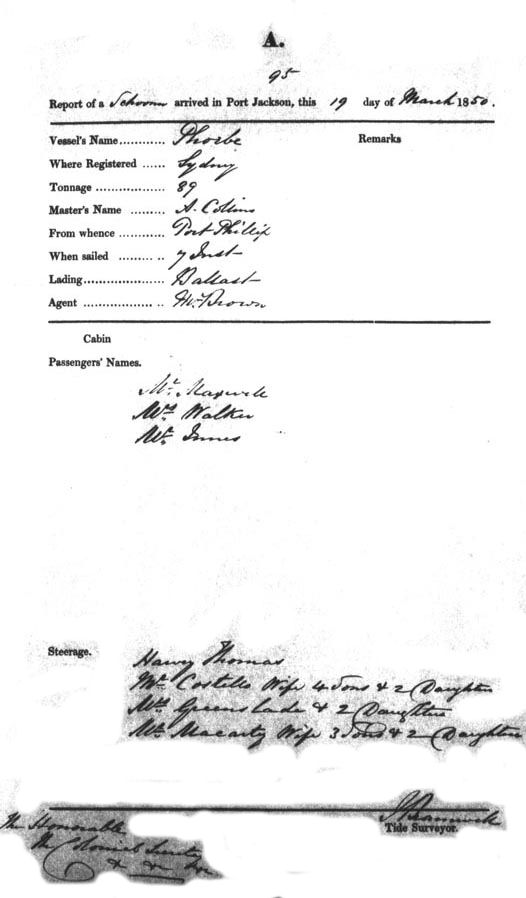 A.
95
Report of a Schooner arrived in Port Jackson, this 19 day of March 1850.
Vessel's Name............ Phoebe
Remarks
Where Registered ...... Sydney
Tonnage .................. 89
Master's Name ......... A. Collins
From whence ............ Port Phillip
When sailed ......... .. 7 Inst
Lading..................... Ballast
Agent .................. .. Mr Brown
Cabin
Passengers' Names.
Mr. Maxwell
Mrs Walker
Mr. Innes
Steerage.
Harry Thomas
Mr. Costello Wife 4 Sons & 2 Daughters
Mrs Greenslade & 2 Daughters
Mr. Macarty Wife 3 Sons & 2 Daughters
Tide Surveyor.
The Honorable
The Colonial Secretary